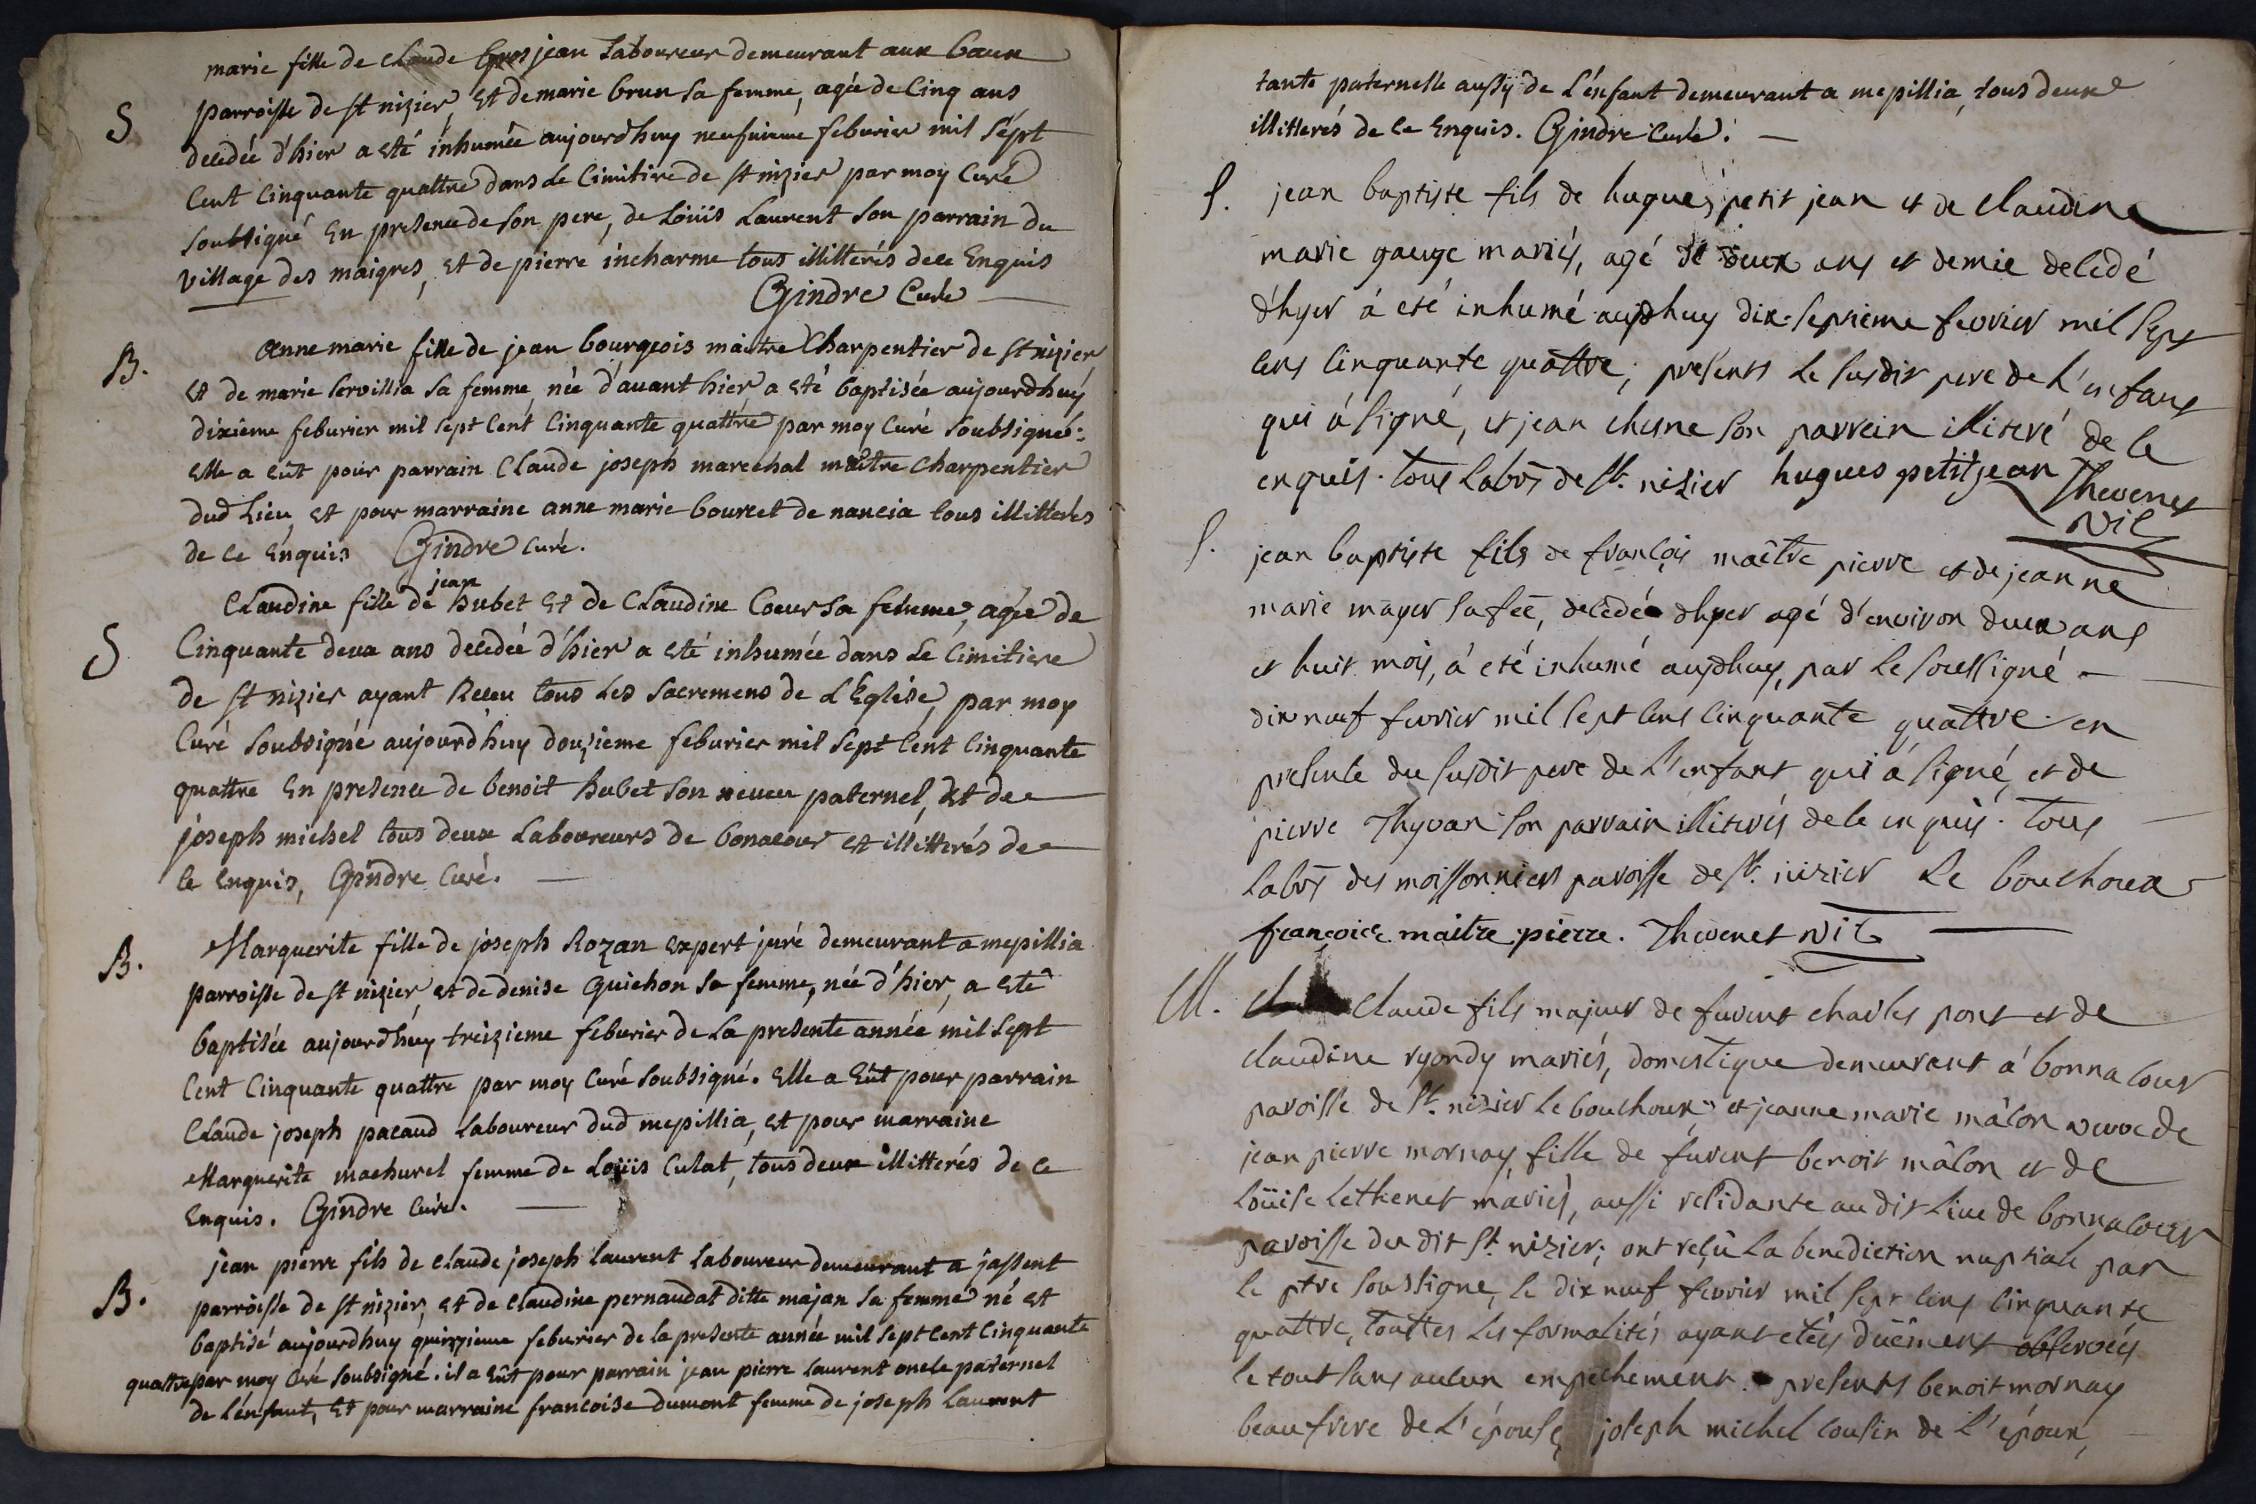 marie fille de claude Grosjean laboureur demeurant aux baux
S parroisse de st nizier, et de marie brun sa femme, agée de cinq ans
decedée d'hier a eté inhumée aujourdhuy neufuieme feburier mil sept
cent cinquante quattre dans le cimitire de st nizier par moy curé
soubsigné en presence de son pere, de Loüis Laurent son parrain du
village des maigres, et de pierre incharme tous illitterés de ce enquis
Gindre curé
B. Anne marie fille de jean bourgeois maitre charpentier de st nizier
et de marie servillia sa femme, née d'auant hier, a eté baptisée aujourdhuy
dixieme feburier mil sept cent cinquante quattre par moy curé soubsigné:
elle a eût pour parrain claude joseph marechal maitre charpentier
dud lieu, et pour marraine anne marie bourcet de nancia tous illitterés
de ce enquis Gindre curé.
jean
Claudine fille de hubet et de claudine coeur sa femme, agée de
S Cinquante deux ans decedée d'hier a eté inhumée dans le cimitiere
de st nizier ayant receu tous les sacremens de l'Eglise, par moy
curé soubsigné aujourd'huy douzieme feburier mil sept cent cinquante
quattre en presence de benoit hubet son neueu paternel, et de
joseph michel tous deux laboureurs de bonacour et illitterés de
ce enquis, Gindre curé.
B. Marguerite fille de joseph Rozan expert juré demeurant a mepillia
parroisse de st nizier, et de denise Guichon sa femme, née d'hier, a eté
baptisée aujourdhuy treizieme feburier de la presente année mil sept
cent cinquante quattre par moy curé soubsigné. elle a eût pour parrain
claude joseph pacaud laboureur dud mepillia, et pour marraine
Marguerite machurel femme de Loüis culat, tous deux illitterés de ce
enquis. Gindre curé.
jean pierre fils de claude joseph laurent laboureur demeurant a jassent
B. parroisse de st nizier, et de claudine pernaudat ditte majan sa femme né et
baptisé aujourdhuy quinzieme feburier de la presente année mil sept cent cinquante
quattre par moy curé soubsigné. il a eût pour parrain jean pierre laurent oncle paternel
de l'enfant, et pour marraine francoise dumont femme de joseph laurent
tante paternelle aussy de l'enfant demeurant a mepillia, tous deux
illitterés de ce enquis. Gindre curé.
S. jean baptiste fils de hugues petit jean et de claudine
marie gauge mariés, agé de deux ans et demie decedé
d'hyer à eté inhumé aujdhuy dix-septieme fevrier mil sept
cens cinquante quattre; presents le susdit pere de l'enfant
qui à signé, et jean chesne son parrein illiteré de ce
enquis. tous labrs de st. nizier hugues petitjean Thevenet
vic
S. jean baptiste fils de françois maître pierre et de jeanne
marie mayer sa fee, decedé dhyer agé d'environ deux ans
et huit mois, à eté inhumé aujdhuy, par le soussigné
dix neuf fevrier mil sept cens cinquante quattre en
presence du susdit pere de l'enfant qui à signé, et de
pierre Thyvan son parrain illiterés de ce enquis. tous
labrs des moissonniers paroisse de st. nizier le bouchoux
françois maitre pierre. Thevenet vic
M. claude fils majeur de furent charles pont et de
claudine ryondy mariés, domestique demeurant à bonnacour
paroisse de st. nizier le bouchoux; et jeanne marie mâlon veuve de
jean pierre mornay, fille de furent benoit mâlon et de
loüise lethenet mariés, aussi residante audit lieu de bonnacour
paroisse du dit st. nizier; ont reçû la benediction nuptiale par
le ptre soussigné, le dix neuf fevrier mil sept cens cinquante
quattre, touttes les formalités ayant etés düement observées
le tout sans aucun empêchement. presents benoit mornay
beaufrere de l'épouse, joseph michel cousin de l'époux,